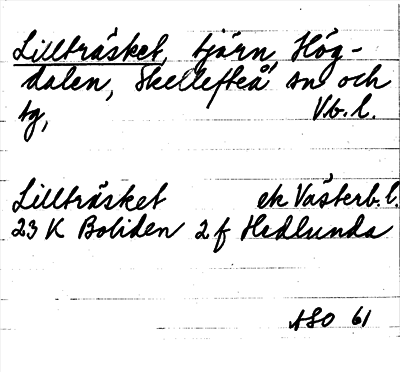 Lillträsket, tjärn, Hög-
dalen, Skellefteå sn och
tg, Vb. l.
Lillträsket ek Västerb. l.
23 K Boliden 2 f Hedlunda
ASO 61